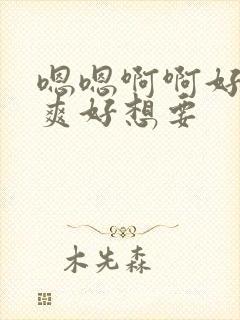 嗯嗯啊啊好
爽好想要
木先森